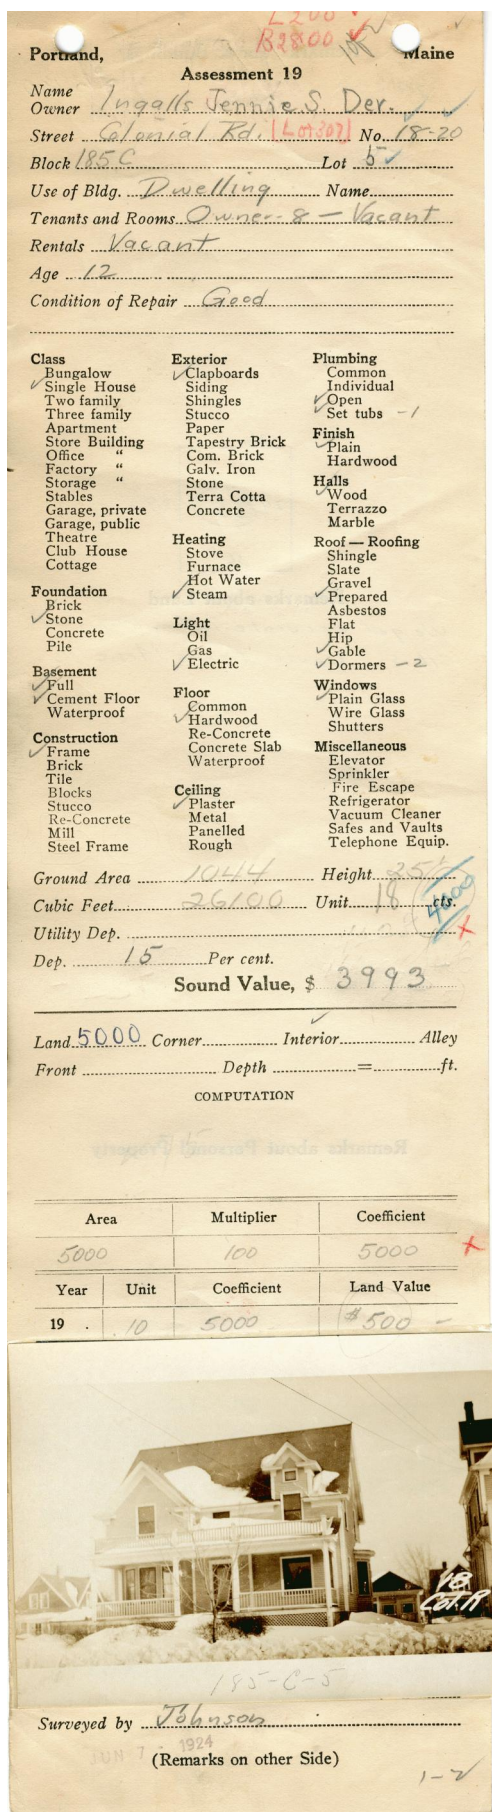 L200
B2800
Portland, Maine
Assessment 19
Name
Owner Ingalls Jennie S. Dev.
Street Colonial Rd. [Lot 307] No. 18-20
Block 185 C Lot 5
Use of Bldg. Dwelling Name
Tenants and Rooms Owner - 8 - Vacant
Rentals Vacant
Age 12
Condition of Repair Good
Class
Bungalow
Single House
Two family
Three family
Apartment
Store Building
Office “
Factory “
Storage “
Stables
Garage, private
Garage, public
Theatre
Club House
Cottage
Foundation
Brick
Stone
Concrete
Pile
Basement
Full
Cement Floor
Waterproof
Construction
Frame
Brick
Tile
Blocks
Stucco
Re-Concrete
Mill
Steel Frame
Exterior
Clapboards
Siding
Shingles
Stucco
Paper
Tapestry Brick
Com. Brick
Galv. Iron
Stone
Terra Cotta
Concrete
Heating
Stove
Furnace
Hot Water
Steam
Light
Oil
Gas
Electric
Floor
Common
Hardwood
Re-Concrete
Concrete Slab
Waterproof
Ceiling
Plaster
Metal
Panelled
Rough
Plumbing
Common
Individual
Open
Set tubs - 1
Finish
Plain
Hardwood
Halls
Wood
Terrazzo
Marble
Roof — Roofing
Shingle
Slate
Gravel
Prepared
Asbestos
Flat
Hip
Gable
Dormers - 2
Windows
Plain Glass
Wire Glass
Shutters
Miscellaneous
Elevator
Sprinkler
Fire Escape
Refrigerator
Vacuum Cleaner
Safes and Vaults
Telephone Equip.
Ground Area 1044 Height 25
Cubic Feet 26100 Unit 18 cts.
4000
Utility Dep.
Dep. 15 Per cent.
Sound Value, $ 3993
Land 5000 Corner Interior Alley
Front Depth = ft.
COMPUTATION
Area Multiplier Coefficient
5000 100 5000
Year Unit Coefficient Land Value
19 . .10 5000 $500 -
18
Col. R
185-C-5
Surveyed by Johnson
JUN 7 - 1924
(Remarks on other Side)
1-2